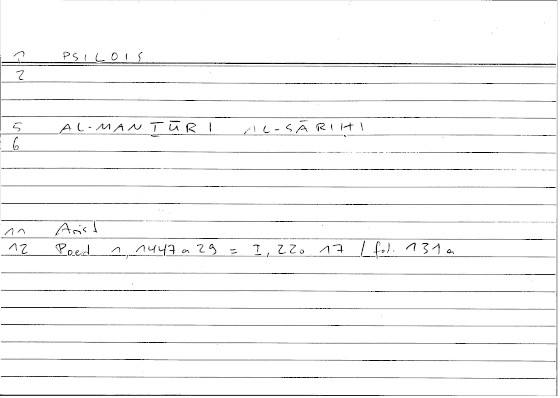 1 PSILOIS
2
5 AL-MANṮŪRI AL-SĀRIḤI
6
11 Arist
12 Poet 1, 1447a29 = I, 220 17 / fol. 131a